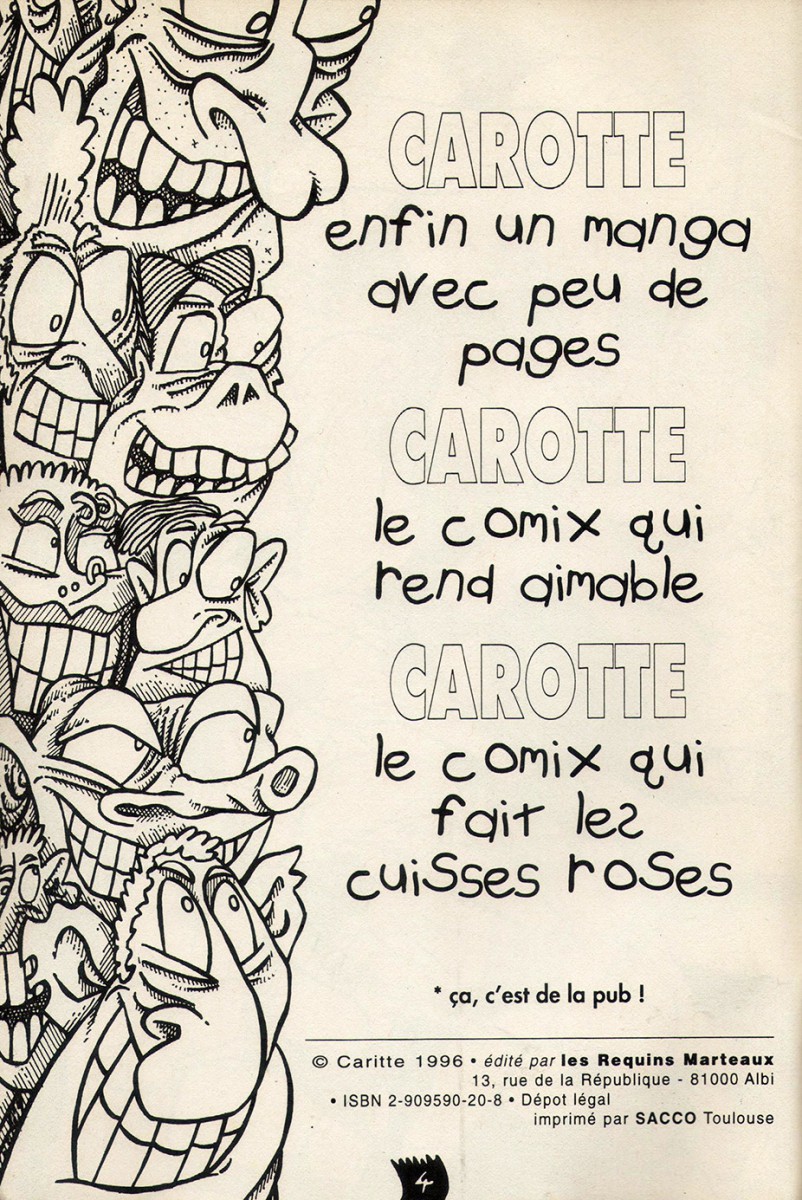 CAROTTE
enfin un manga
avec peu de
pages
CAROTTE
le comix qui
rend aimable
CAROTTE
le comix qui
fait les
cuisses roses
* ça, c'est de la pub !
© Caritte 1996 • édité par les Requins Marteaux
13, rue de la République - 81000 Albi
• ISBN 2-909590-20-8 • Dépot légal
imprimé par SACCO Toulouse
4